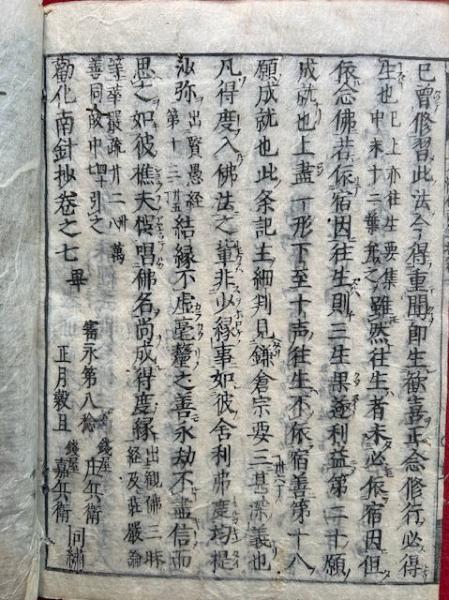 已曾修習此法今得重聞即生歡喜正念修行必得
生也已上亦往生要集中末十三雖然往生者未必依宿因但
依念佛若依宿因往生則三生果遂利益第二十願
成就也上盡一形下至十声往生不依宿善第十八
願成就也此条記主細判見鎌倉宗要三甚深義也
凡得度入佛法之輩非少縁事如彼舍利弗度均提
沙弥出賢愚経第十三結縁不虚毫釐之善永劫不盡信而
思之如彼樵夫假唱佛名尚成得度縁出觀佛三昧経及荘嚴論
華嚴疏廿二萬善同中引之
勸化南針抄巻之七畢
寳永第八稔 錢屋庄兵衛
正月穀旦 錢屋嘉兵衛 同繍